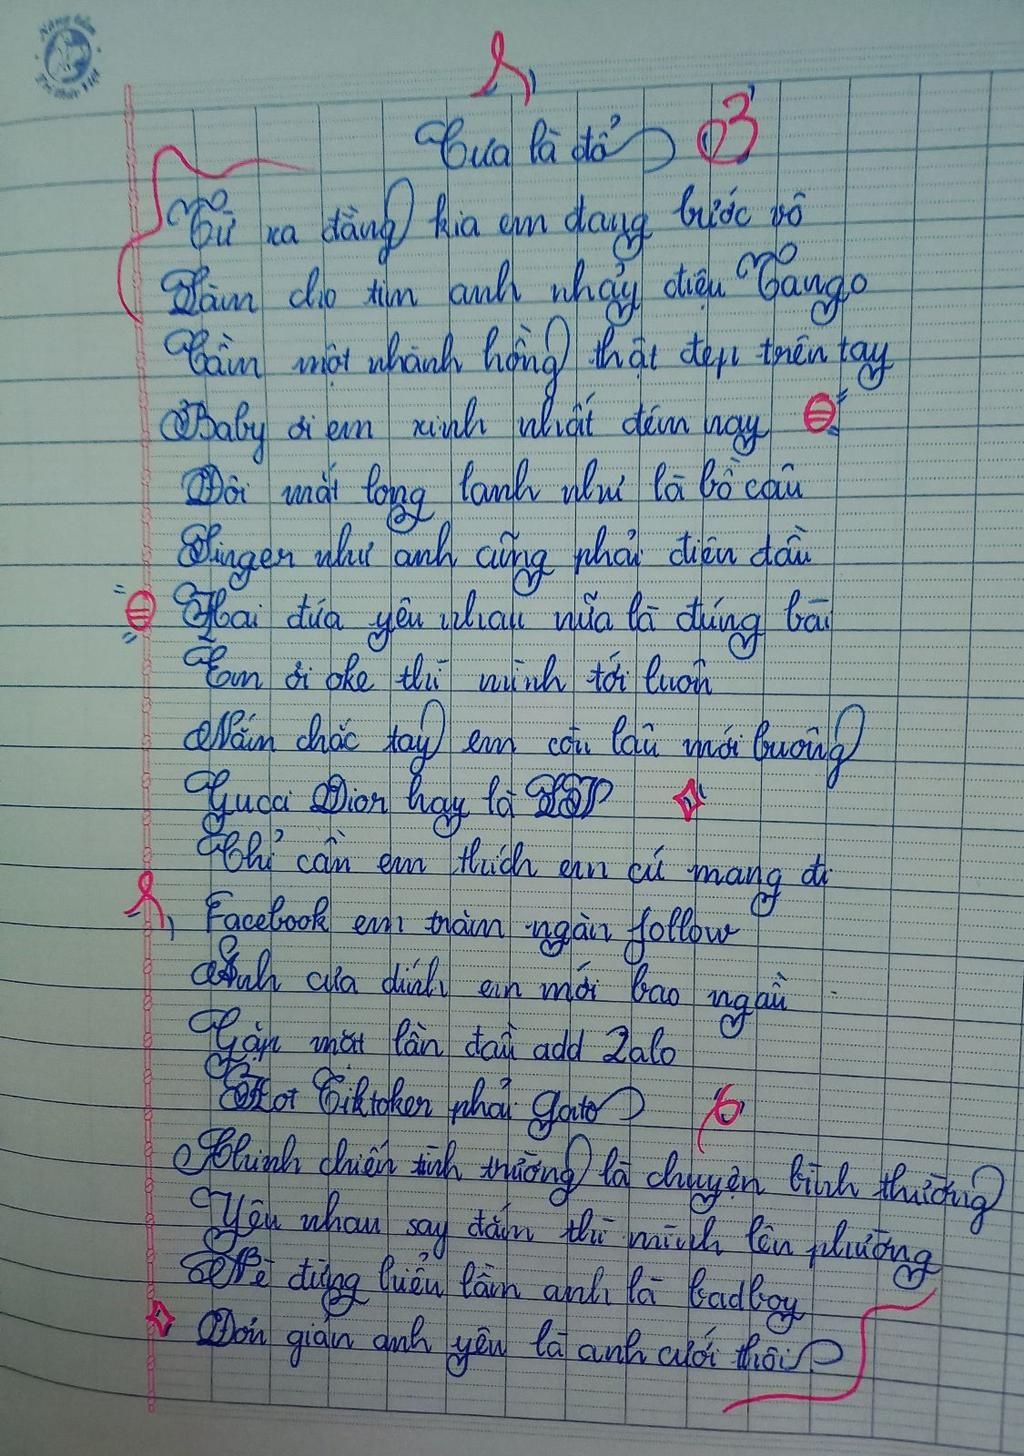 Nâng tầm
Trí thức Việt
Cưa là đổ 03
Từ xa đằng kia em đang bước vô
Làm cho tim anh nhảy điệu Tango
Cầm một nhành hồng thật đẹp trên tay
Baby ơi em xinh nhất đêm nay
Đôi mắt long lanh như là bồ câu
Singer như anh cũng phải điên đầu
Hai đứa yêu nhau nữa là đúng bài
Em ơi oke thì mình tới luôn
Nắm chắc tay em còn lâu mới buông
Gucci Dior hay là
Chỉ cần em thích em cứ mang đi
Facebook em trăm ngàn follow
Anh cưa dính em mới bao ngầu
Gặp mặt lần đầu add Zalo
Hot Tiktoker phải gato
Chinh chiến tình trường là chuyện bình thường
Yêu nhau say đắm thì mình lên phường
Bé đừng hiểu lầm anh là badboy
Đơn giản anh yêu là anh cưới thôi